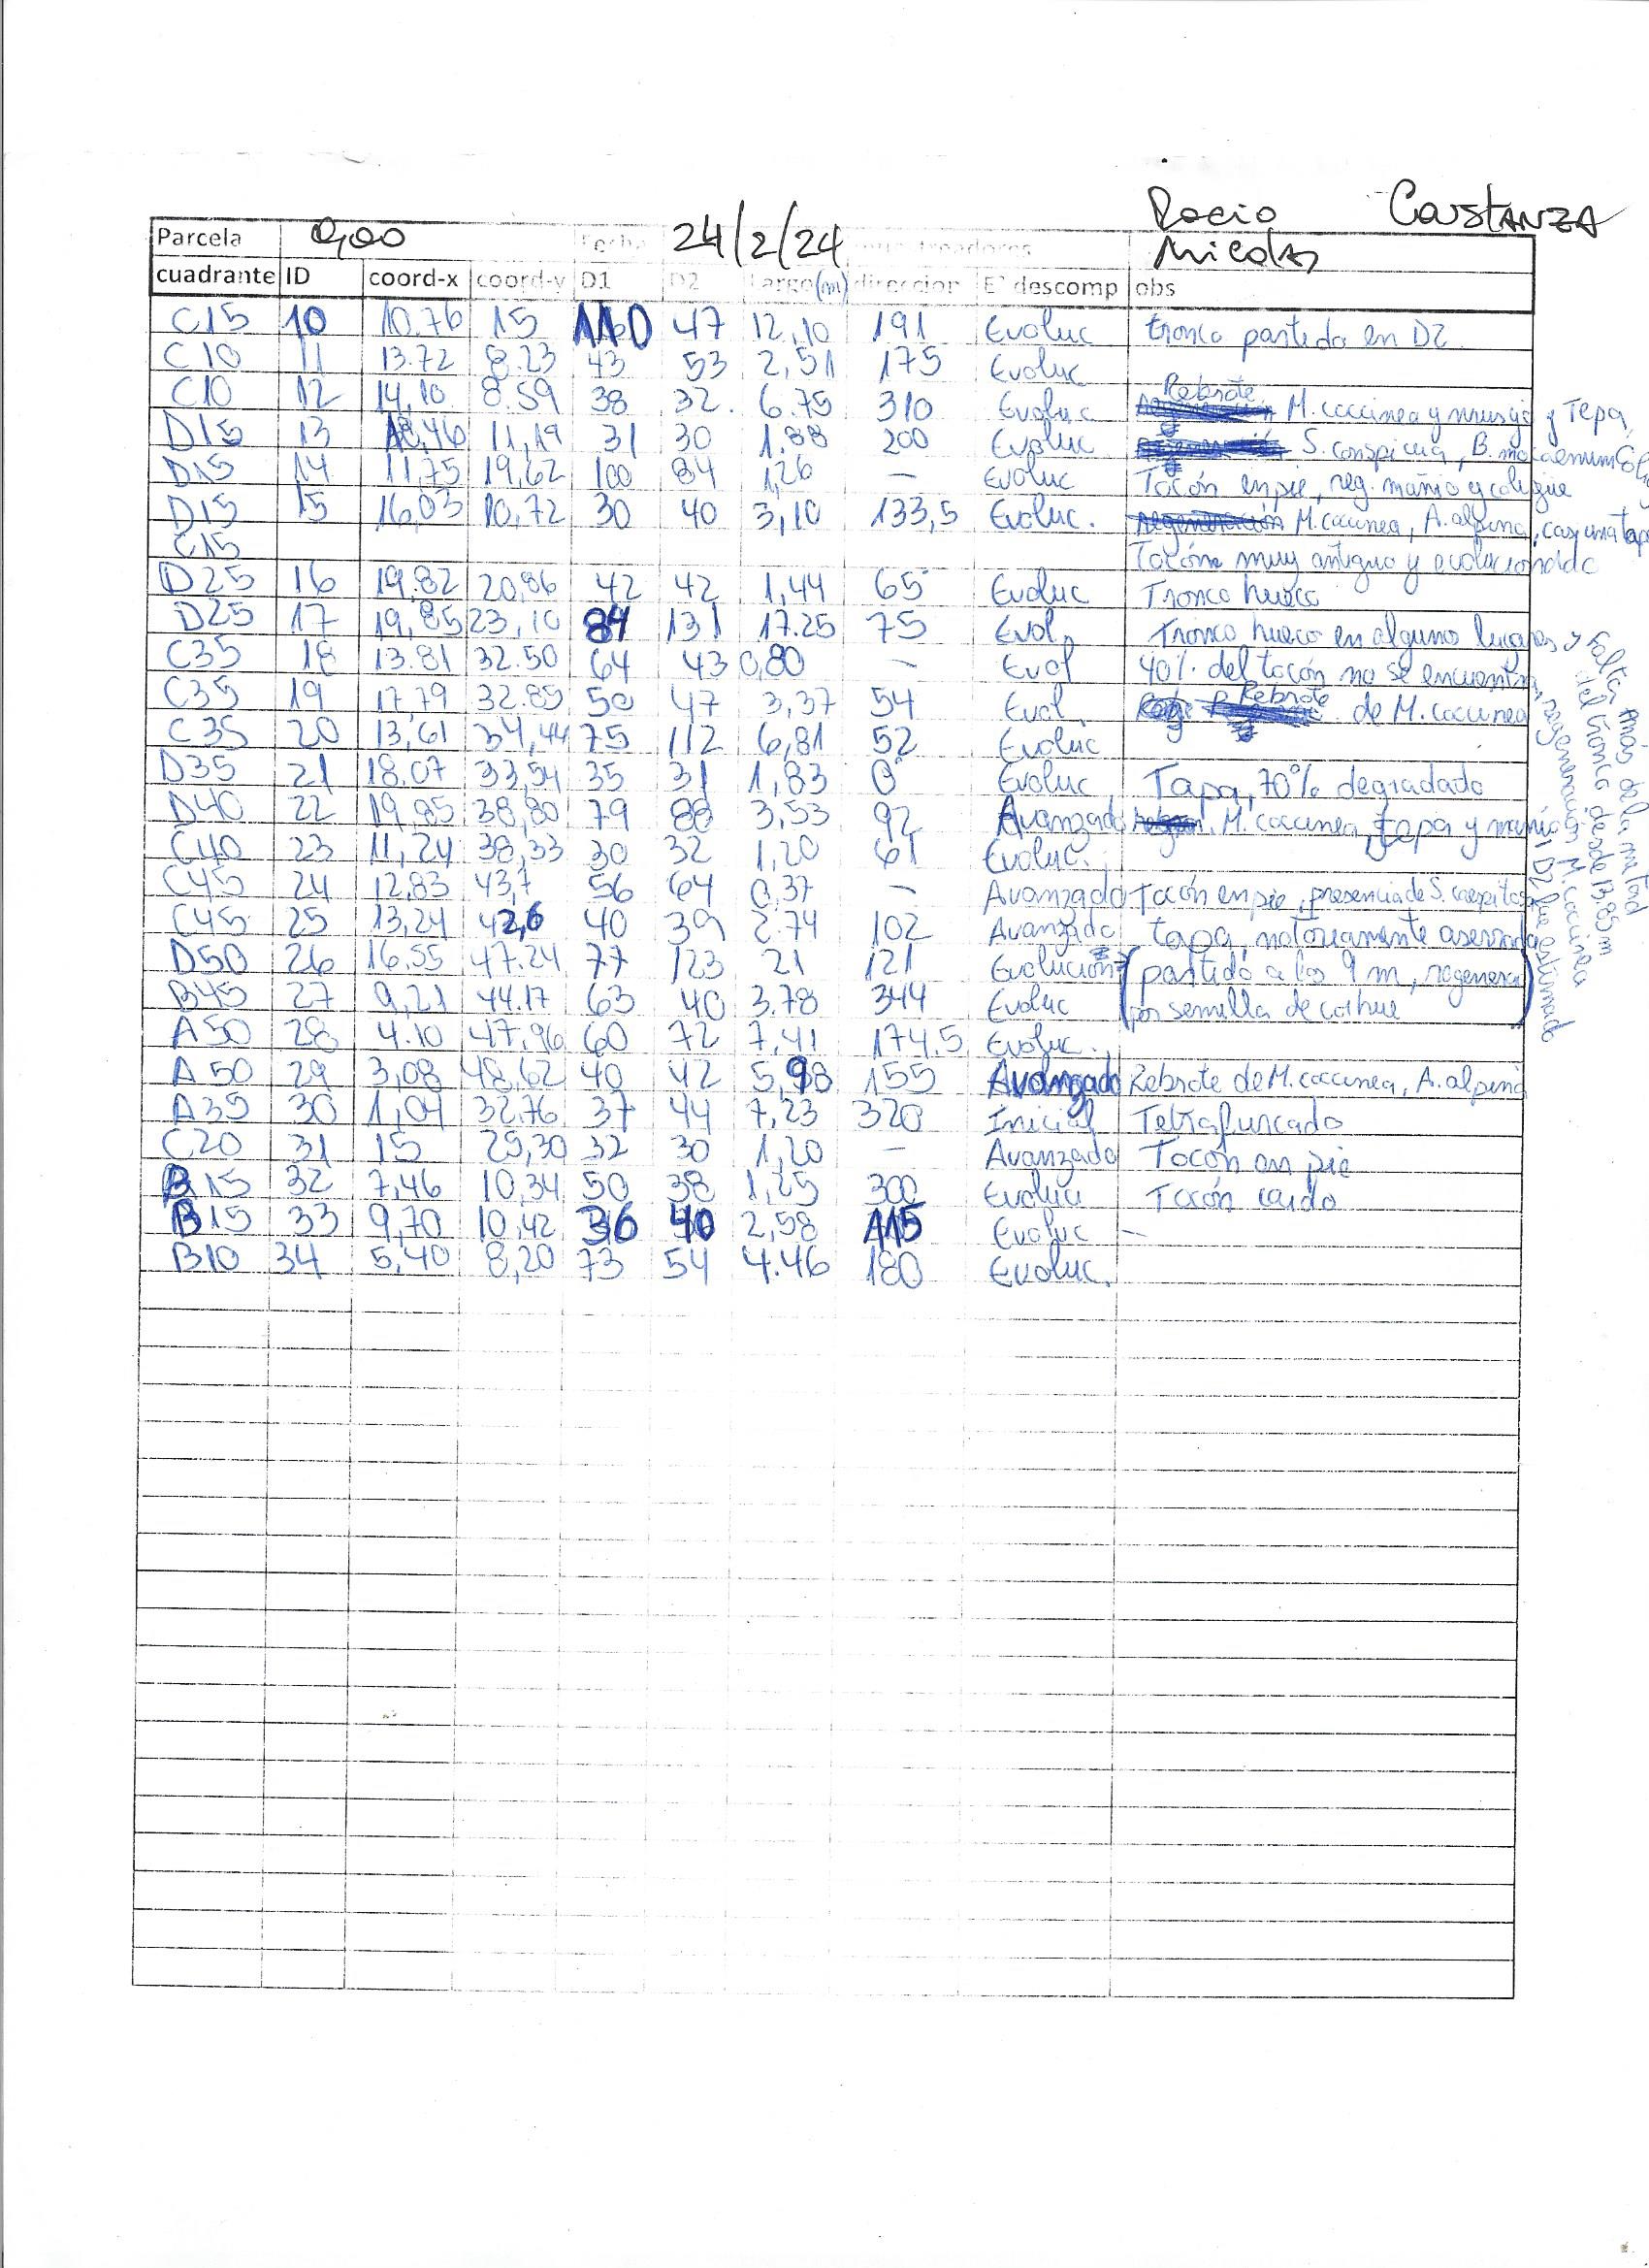 Rocio Constanza
Parcela 0,00 Fecha 24/2/24 Nicolas
cuadrante ID coord-x coord-y D1 D2 Largo(m) direccion E° descomp obs
C15 10 10.76 15 110 47 12,10 191 Evoluc tronco partido en D2
C10 11 13.72 8.23 43 53 2,51 175 Evoluc
C10 12 14,10 8.59 38 32. 6.75 310 Evoluc Rebrote M. coccinea y musgo y Tepa,
D15 13 18,46 11,19 31 30 1.88 200 Evoluc S. conspicua, B.
D15 14 11,75 19,62 100 84 1,26 — Evoluc Tocón en pie, reg. mañio y coligüe
D15 15 16,03 10,72 30 40 3,10 133,5 Evoluc. M. coccinea, A. alpina,
C15 Tocón muy antiguo y evolucionado
D25 16 19.82 20,86 42 42 1,44 65° Evoluc Tronco hueco
D25 17 19,85 23,10 84 131 17.25 75 Evol, Tronco hueco en alguno lugares y falta
C35 18 13.81 32.50 64 43 0,80 — Evol 40% del tocón no se encuentra
C35 19 17,79 32.85 50 47 3,37 54 Evol, Rebrote de M. coccinea
C35 20 13,61 34,44 75 112 6,81 52 Evoluc
D35 21 18,07 33,54 35 31 1,83 0° Evoluc Tapa, 70% degradado
D40 22 19,85 38,80 79 88 3,53 92 Avanzado M. coccinea, tepa y mañio
C40 23 11,24 38,33 30 32 1,20 61 Evoluc.
C45 24 12,83 43,7 56 64 0,37 — Avanzado Tocón en pie, presencia de S.
C45 25 13,24 42,6 40 39 2.74 102 Avanzado tapa, notoriamente aserrada
D50 26 16,55 47.24 77 123 21 121 Evolución (partido a los 9 m, regenerac
B45 27 9,21 44.17 63 40 3.78 344 Evoluc por semilla de coihue)
A50 28 4.10 47,96 60 72 7,41 174.5 Evoluc.
A50 29 3,08 48,62 40 42 5,98 155 Avanzado Rebrote de M. coccinea, A. alpina
A35 30 1,04 32,76 37 44 7,23 320 Inicial Tetrafurcado
C20 31 15 25,30 32 30 1,20 — Avanzado Tocón en pie
B15 32 7,46 10,34 50 38 1,25 300 Evoluc Tocón caido
B15 33 9,70 10,42 36 40 2,58 115 Evoluc —
B10 34 5,40 8,20 73 54 4.46 180 Evoluc.
más de la mitad
del tronco desde
regeneración M. coccinea
D2 fue estimado